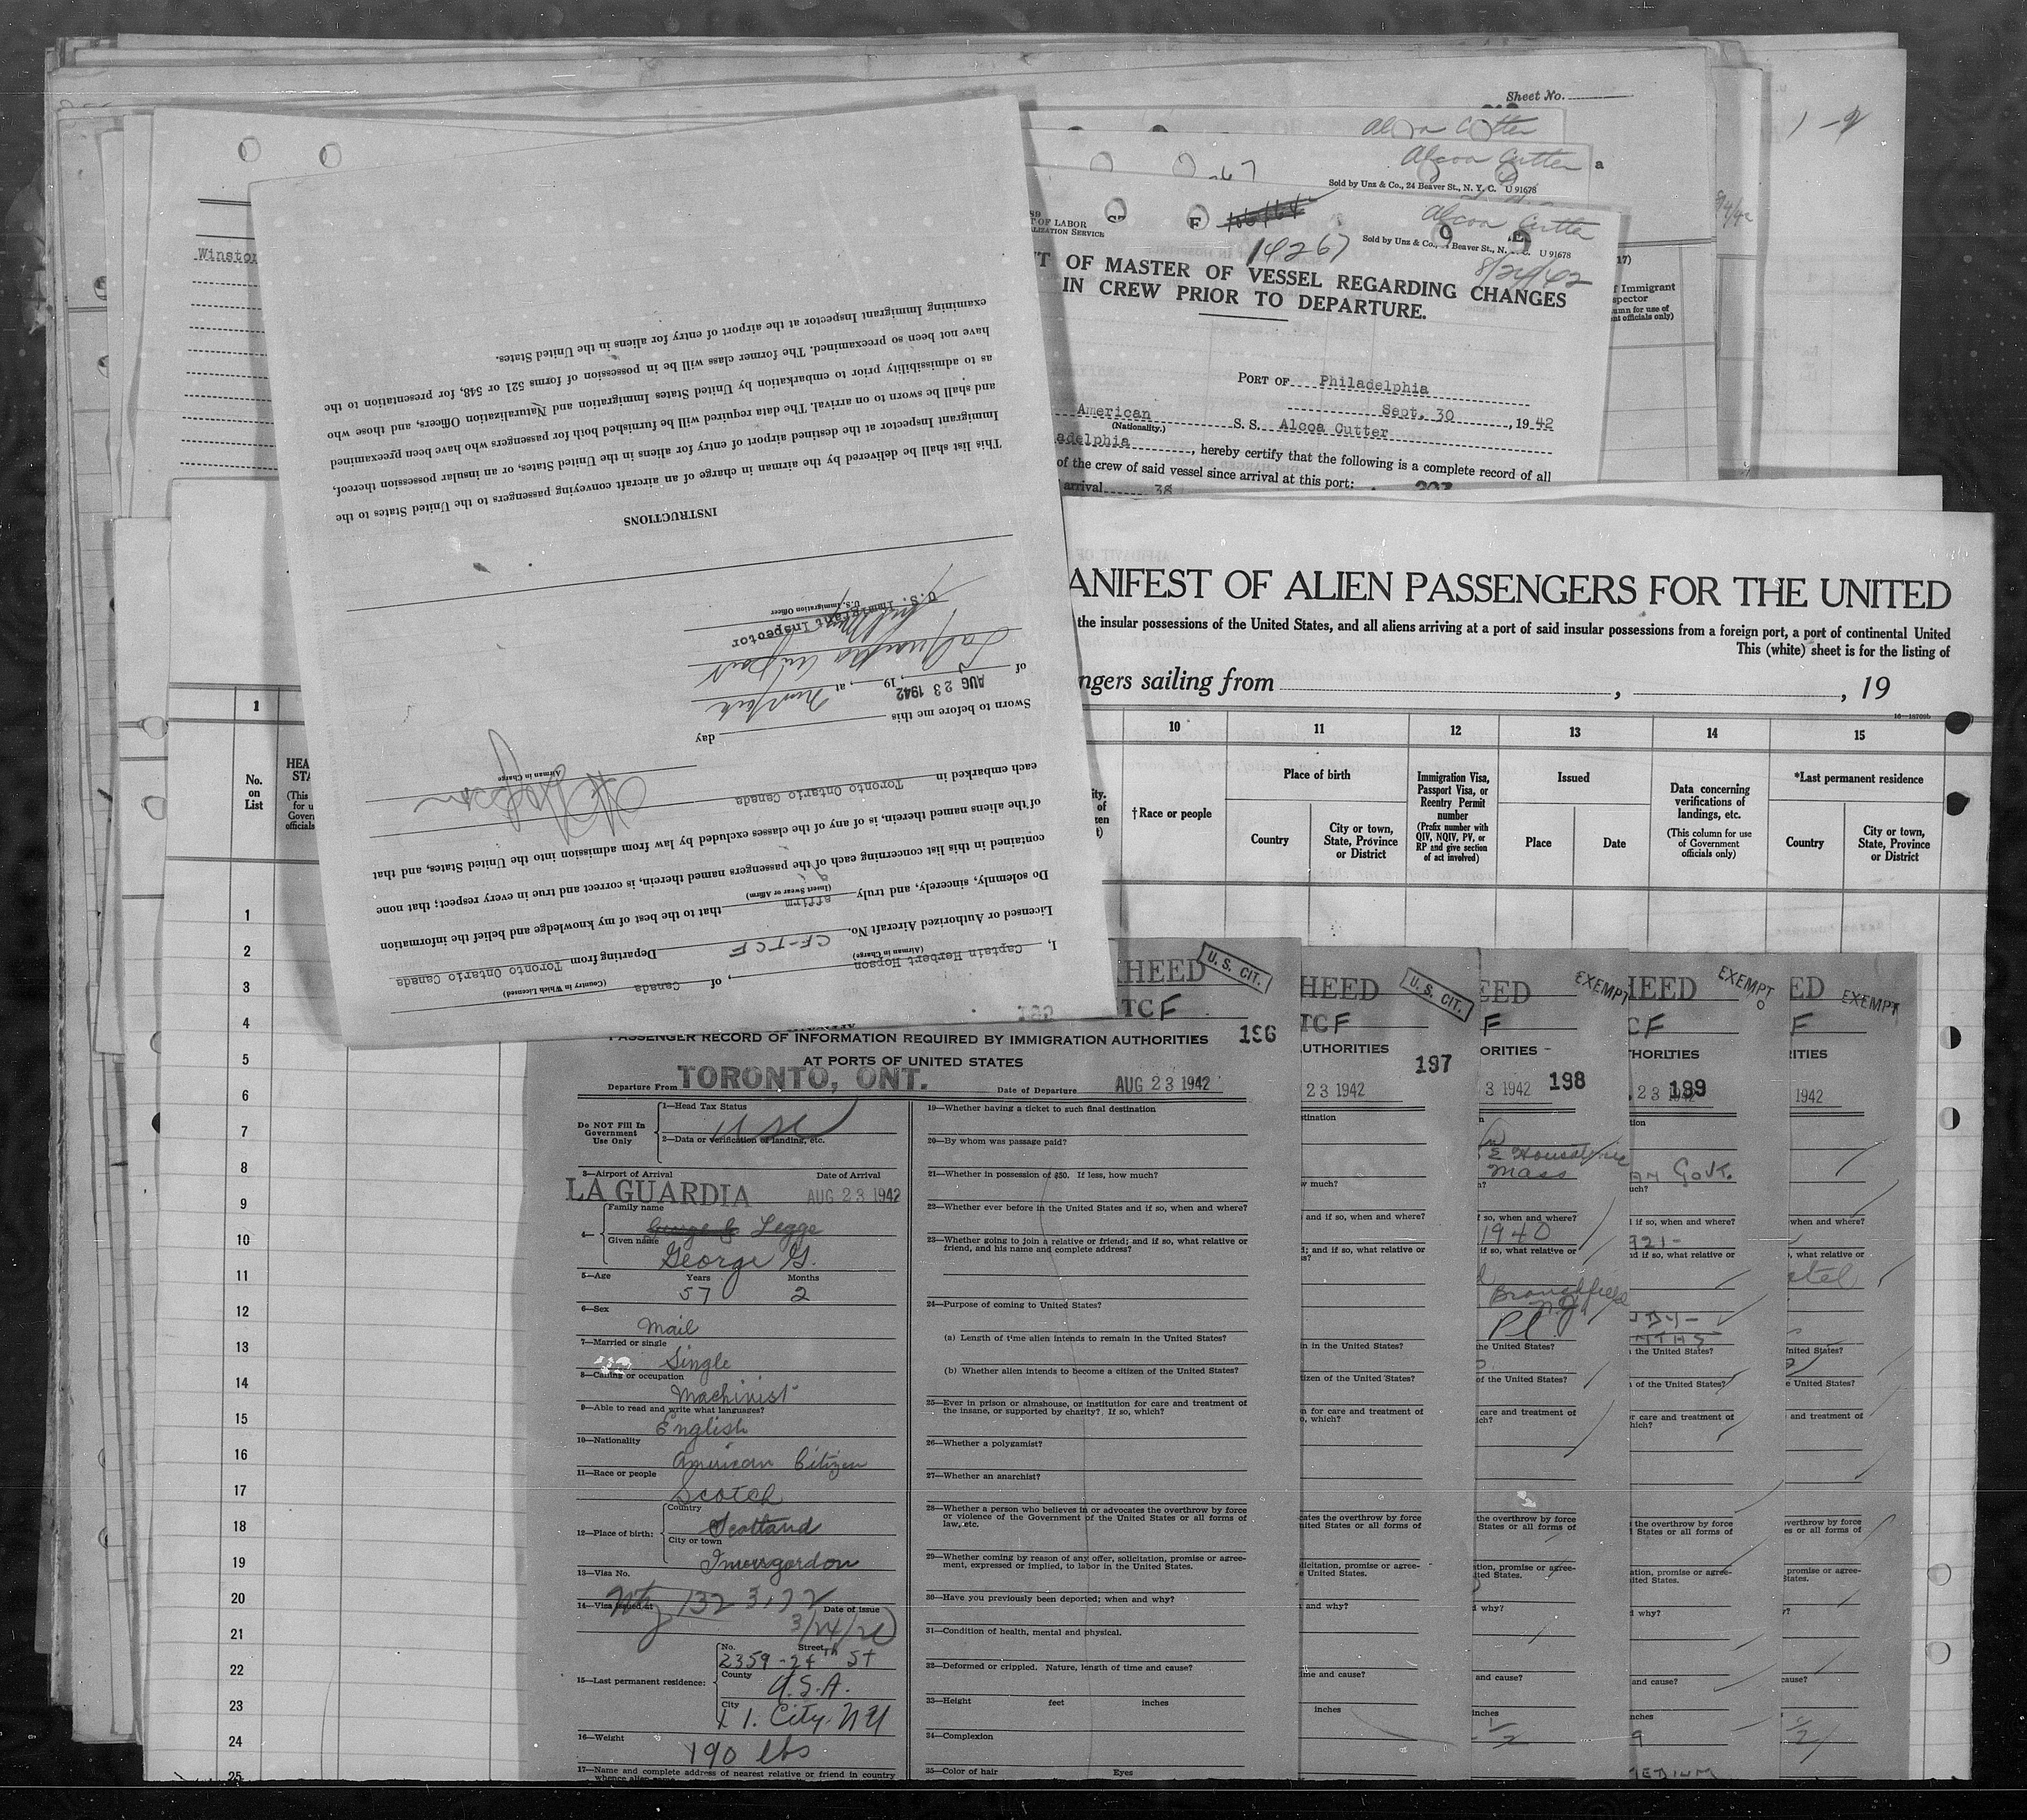 Sheet No.
1-2
Alcoa Cutter
Alcoa Cutter
a
267
Sold by Unz & Co., 24 Beaver St., N. Y. C. U 91678
Alcoa Cutter
14267
Sold by Unz & Co., Beaver St., N. U 91678
8/24/42
T OF LABOR
ALIZATION SERVICE
T OF MASTER OF VESSEL REGARDING CHANGES
IN CREW PRIOR TO DEPARTURE.
PORT OF Philadelphia
Sept. 30, 1942
American S. S. Alcoa Cutter
(Nationality.)
adelphia, hereby certify that the following is a complete record of all
of the crew of said vessel since arrival at this port:
arrival 38
17)
f Immigrant
spector
umn for use of
nt officials only)
Winston
I, Captain Herbert Hopson, of Canada
(Airman in Charge) (Country in Which Licensed)
Licensed or Authorized Aircraft No. CF-TCF Departing from Toronto Ontario Canada
Do solemnly, sincerely, and truly affirm that to the best of my knowledge and belief the information
(Insert Swear or Affirm)
contained in this list concerning each of the passengers named therein, is correct and true in every respect; that none
of the aliens named therein, is of any of the classes excluded by law from admission into the United States, and that
each embarked in Toronto Ontario Canada
Airman in Charge
Sworn to before me this day
of AUG 23 1942, 19, at New York
La Guardia Airport
U.S. Immigrant Inspector
U.S. Immigration Officer
INSTRUCTIONS
This list shall be delivered by the airman in charge of an aircraft conveying passengers to the United States to the
Immigrant Inspector at the destined airport of entry for aliens in the United States, or an insular possession thereof,
and shall be sworn to on arrival. The data required will be furnished both for passengers who have been preexamined
as to admissibility prior to embarkation by United States Immigration and Naturalization Officers, and those who
have not been so preexamined. The former class will be in possession of forms 521 or 548, for presentation to the
examining Immigrant Inspector at the airport of entry for aliens in the United States.
ANIFEST OF ALIEN PASSENGERS FOR THE UNITED
the insular possessions of the United States, and all aliens arriving at a port of said insular possessions from a foreign port, a port of continental United
This (white) sheet is for the listing of
ngers sailing from , , 19
1 10 11 12 13 14 15
No. on List
HEA
STA
(This
for u
Gover
officials
† Race or people
Place of birth
Country
City or town, State, Province or District
Immigration Visa, Passport Visa, or Reentry Permit number
(Prefix number with QIV, NQIV, PV, or RP and give section of act involved)
Issued
Place
Date
Data concerning verifications of landings, etc.
(This column for use of Government officials only)
*Last permanent residence
Country
City or town, State, Province or District
1
2
3
4
5
6
7
8
9
10
11
12
13
14
15
16
17
18
19
20
21
22
23
24
25
HEED U. S. CIT.
TCF
196
PASSENGER RECORD OF INFORMATION REQUIRED BY IMMIGRATION AUTHORITIES
AT PORTS OF UNITED STATES
Departure From TORONTO, ONT. Date of Departure AUG 23 1942
Do NOT Fill In Government Use Only
1—Head Tax Status
2—Data or verification of landing, etc.
3—Airport of Arrival Date of Arrival
LA GUARDIA AUG 23 1942
4— Family name Legge
Given name George G.
5—Age Years 57 Months 2
6—Sex
Mail
7—Married or single
Single
8—Calling or occupation
Machinist
9—Able to read and write what languages?
English
10—Nationality
American Citizen
11—Race or people
Scotch
12—Place of birth: Country Scotland
City or town
Invergordon
13—Visa No.
132 3172
14—Visa issued at Date of issue
3/24/20
15—Last permanent residence: No. Street
2359-24th St
County U.S.A.
City L I. City. NY
16—Weight
190 lbs
17—Name and complete address of nearest relative or friend in country
whence alien came
19—Whether having a ticket to such final destination
20—By whom was passage paid?
21—Whether in possession of $50. If less, how much?
22—Whether ever before in the United States and if so, when and where?
23—Whether going to join a relative or friend; and if so, what relative or
friend, and his name and complete address?
24—Purpose of coming to United States?
(a) Length of time alien intends to remain in the United States?
(b) Whether alien intends to become a citizen of the United States?
25—Ever in prison or almshouse, or institution for care and treatment of
the insane, or supported by charity? If so, which?
26—Whether a polygamist?
27—Whether an anarchist?
28—Whether a person who believes in or advocates the overthrow by force
or violence of the Government of the United States or all forms of
law, etc.
29—Whether coming by reason of any offer, solicitation, promise or agree-
ment, expressed or implied, to labor in the United States.
30—Have you previously been deported; when and why?
31—Condition of health, mental and physical.
32—Deformed or crippled. Nature, length of time and cause?
33—Height feet inches
34—Complexion
35—Color of hair Eyes
HEED U. S. CIT.
TCF
UTHORITIES
197
23 1942
stination
w much?
and if so, when and where?
d; and if so, what relative or
n in the United States?
tizen of the United States?
n for care and treatment of
o, which?
cates the overthrow by force
nited States or all forms of
licitation, promise or agree-
e United States.
and why?
ime and cause?
inches
EED EXEMPT
F
ORITIES
3 1942 198
Mass
f so, when and where?
1940
if so, what relative or
N.J.
Pl
the United States?
of the United States?
care and treatment of
ich?
the overthrow by force
States or all forms of
tion, promise or agree-
ited States.
why?
and cause?
inches
1/2
HEED EXEMPT
CF
THORITIES
23 1942 199
tion
Govt.
uch?
if so, when and where?
921-
nd if so, what relative or
MTHS
the United States?
of the United States?
r care and treatment of
hich?
the overthrow by force
States or all forms of
ation, promise or agree-
ited States.
d why?
and cause?
nches
9
MEDIUM
ED EXEMPT
F
RITIES
1942
when and where?
, what relative or
otel
nited States?
e United States?
and treatment of
overthrow by force
es or all forms of
promise or agree-
States.
cause?
1/2